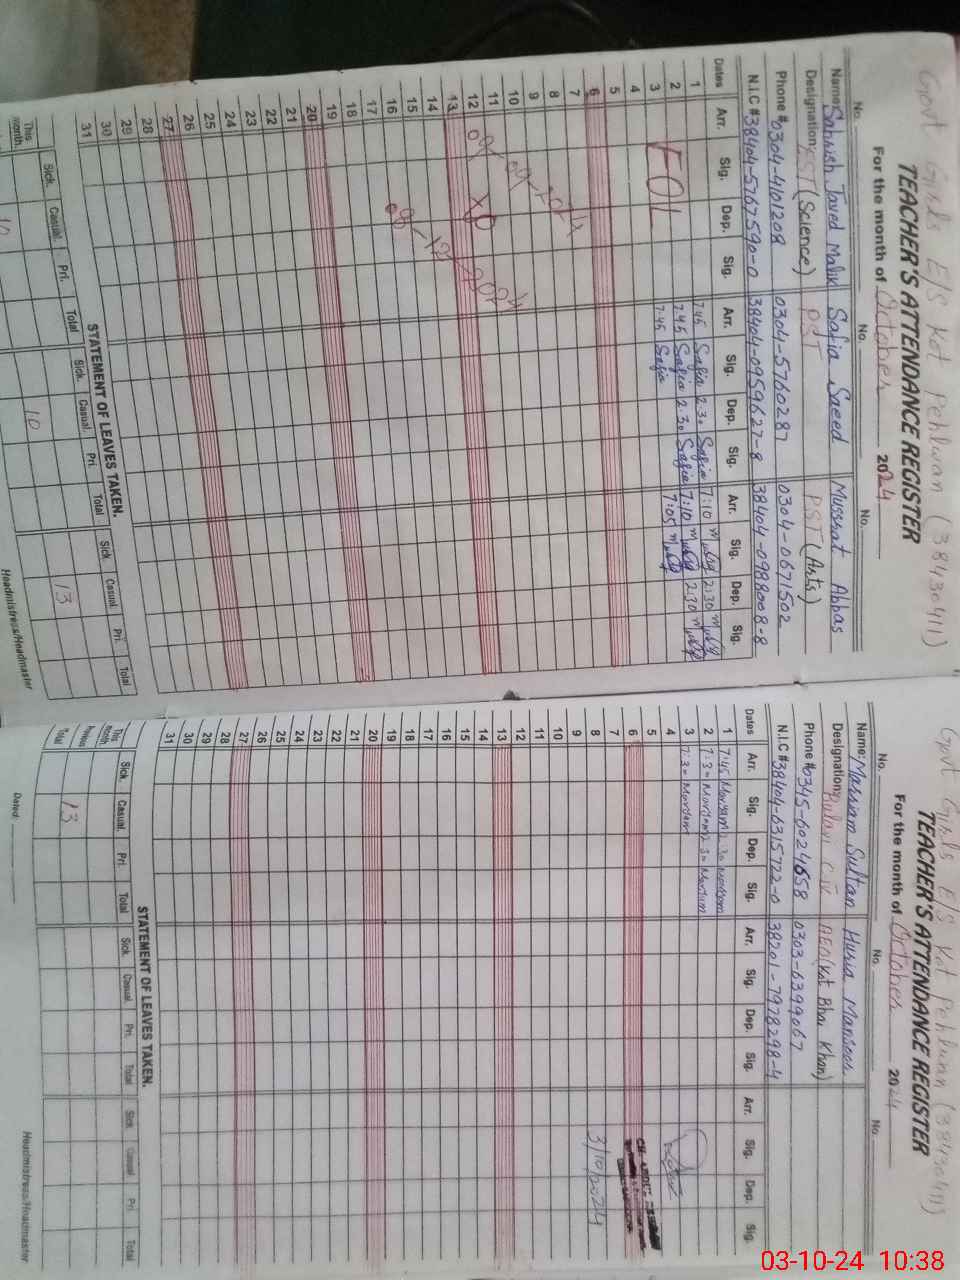 Govt Girls E/S Kot Pehlwan (38430411)
TEACHER'S ATTENDANCE REGISTER
For the month of October 2024
No. No. No.
Name: Sabrish Javed Malik Safia Saeed Mussrat Abbas
Designation: (Science) PST PST (Arts)
Phone # 0304-4101208 0304-5760287 0304-0671502
N.I.C # 38404-5767590-0 38404-0959627-8 38404-0988008-8
Dates Arr. Sig. Dep. Sig. Arr. Sig. Dep. Sig. Arr. Sig. Dep. Sig.
1 7:45 Safia 2:30 Safia 7:10 2:30
2 7:45 Safia 2:30 Safia 7:10 2:30
3 EOL 7:45 Safia 7:05
4
5
6
7
8
9
10
11
12 09-09-2024
13 To
14
15
16 08-12-2024
17
18
19
20
21
22
23
24
25
26
27
28
29
30
31
STATEMENT OF LEAVES TAKEN.
Sick. Casual. Pri. Total Sick. Casual. Pri. Total Sick. Casual Pri. Total
This month.
10 10 13
Headmistress/Headmaster
Govt Girls E/S Kot Pehlwan (38430411)
TEACHER'S ATTENDANCE REGISTER
For the month of October 2024
No. No. No.
Name: Marriam Sultan Huria Mansoor
Designation: AEO (Kot Bhai Khan)
Phone # 0345-6024658 0303-6399067
N.I.C # 38404-6315722-0 38201-7978298-4
Dates Arr. Sig. Dep. Sig. Arr. Sig. Dep. Sig. Arr. Sig. Dep. Sig.
1 7:45 Mariam 2:30 Mariam
2 7:30 Mariam 2:30 Mariam
3 7:30 Mariam
4
5
6
7
8 3/10/2024
9
10
11
12
13
14
15
16
17
18
19
20
21
22
23
24
25
26
27
28
29
30
31
STATEMENT OF LEAVES TAKEN.
Sick. Casual. Pri. Total Sick. Casual. Pri. Total Sick. Casual. Pri. Total
This month
Previous
Total 13
Dated: Headmistress/Headmaster
03-10-24 10:38